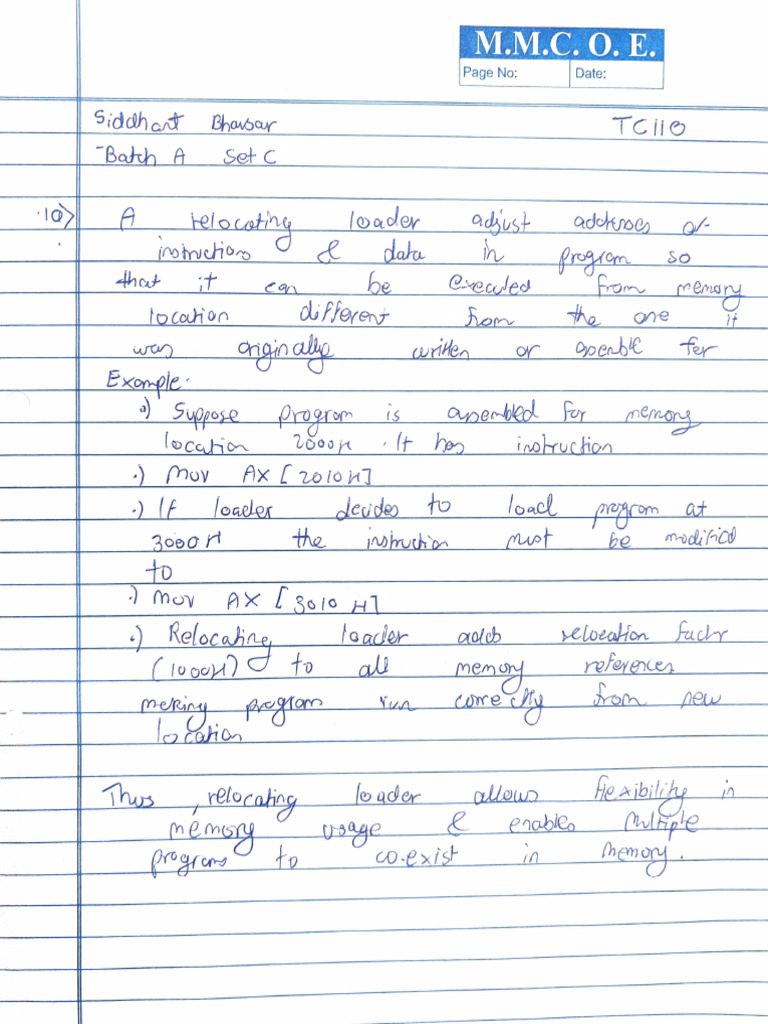 M.M.C. O. E.
Page No: Date:
Siddhant Bhavsar TC110
-Batch A Set C
10> A relocating loader adjust addresses of
instructions & data in program so
that it can be executed from memory
location different from the one it
was originally written or assemble for
Example.
.) Suppose program is assembled for memory
location 2000H . It has instruction
.) Mov AX [2010H]
.) If loader decides to load program at
3000H the instruction must be modified
to
.) Mov AX [3010H]
.) Relocating loader adds relocation factr
(1000H) to all memory references
making program run correctly from new
location
Thus , relocating loader allows flexibility in
memory usage & enables multiple
programs to co-exist in memory.